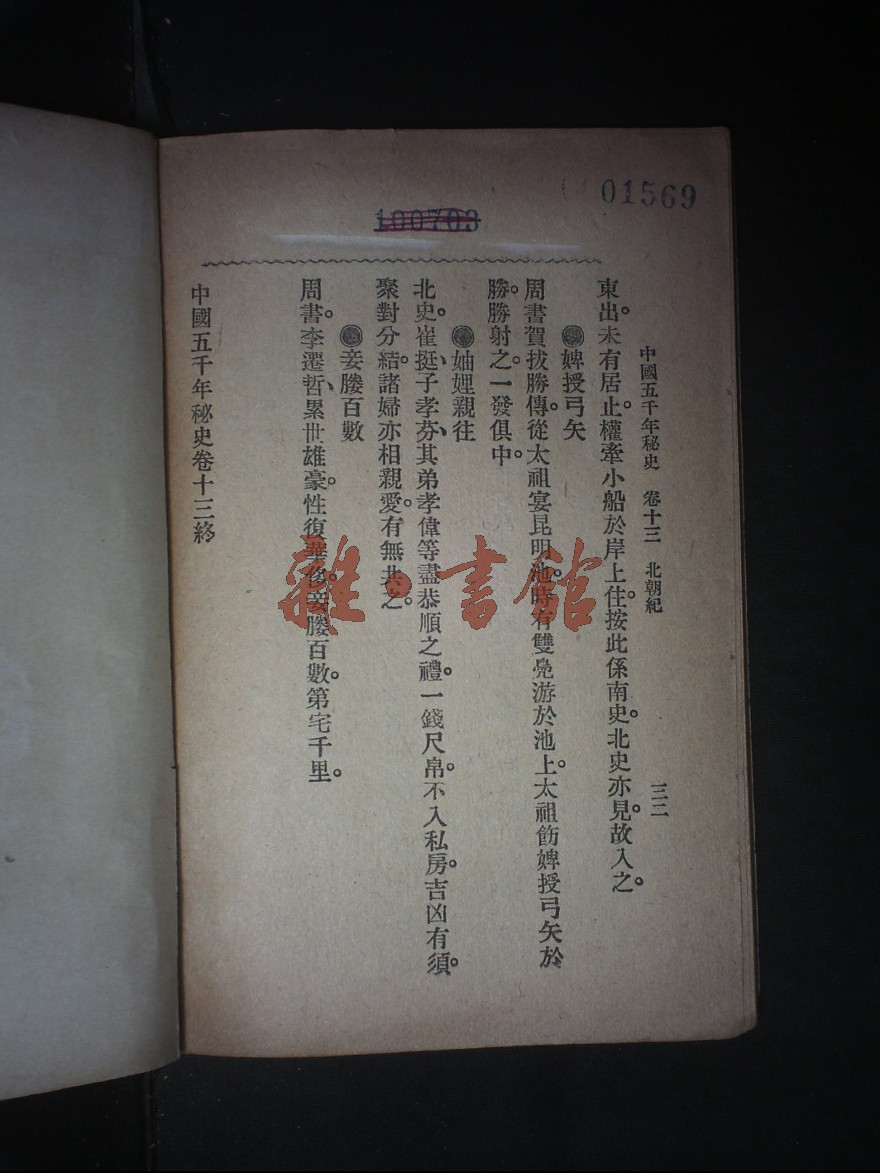 01569
100703
中國五千年秘史 卷十三 北朝紀 三二
東出。未有居止。權牽小船於岸上住。按此係南史。北史亦見。故入之。
婢授弓矢
周書賀拔勝傳。從太祖宴昆明池。時有雙鳧游於池上。太祖飭婢授弓矢於
勝。勝射之。一發俱中。
妯娌親往
北史。崔挺、子孝芬、其弟孝偉等盡恭順之禮。一錢尺帛。不入私房。吉凶有須。
聚對分結。諸婦亦相親愛。有無共之。
妾媵百數
周書。李遷哲、累世雄豪。性復華侈。妾媵百數。第宅千里。
中國五千年秘史卷十三終
雜·書館